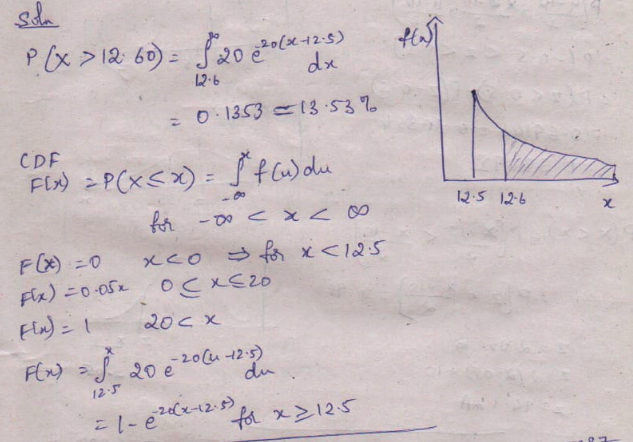 Soln
P(x > 12.60) = ∫_{12.6}^{∞} 20 e^{-20(x-12.5)} dx
= 0.1353 ≃ 13.53%
CDF
F(x) = P(X ≤ x) = ∫_{-∞}^{x} f(u) du
for -∞ < x < ∞
F(x) = 0 x < 0 ⇒ for x < 12.5
F(x) = 0.05x 0 ≤ x ≤ 20
F(x) = 1 20 < x
F(x) = ∫_{12.5}^{x} 20 e^{-20(u-12.5)} du.
= 1 - e^{-20(x-12.5)} for x ≥ 12.5
f(x)
12.5 12.6 x